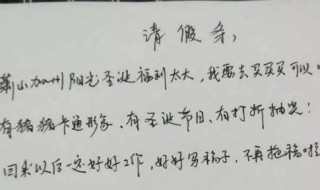 请假条,
萧山加州阳光圣诞福利太大,我要去买买买可以
有猪猪卡通形象、有圣诞节目、有打折抽奖!
回来以后一定好好工作,好好写稿子,不再拖稿啦